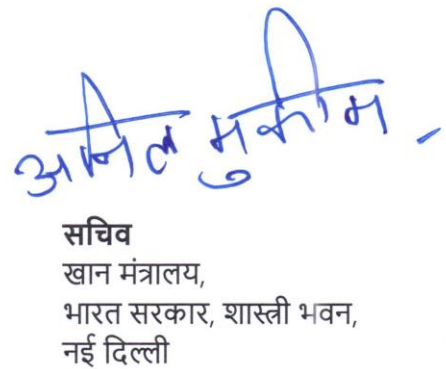 अनिल मुकीम
सचिव
खान मंत्रालय,
भारत सरकार, शास्त्री भवन,
नई दिल्ली